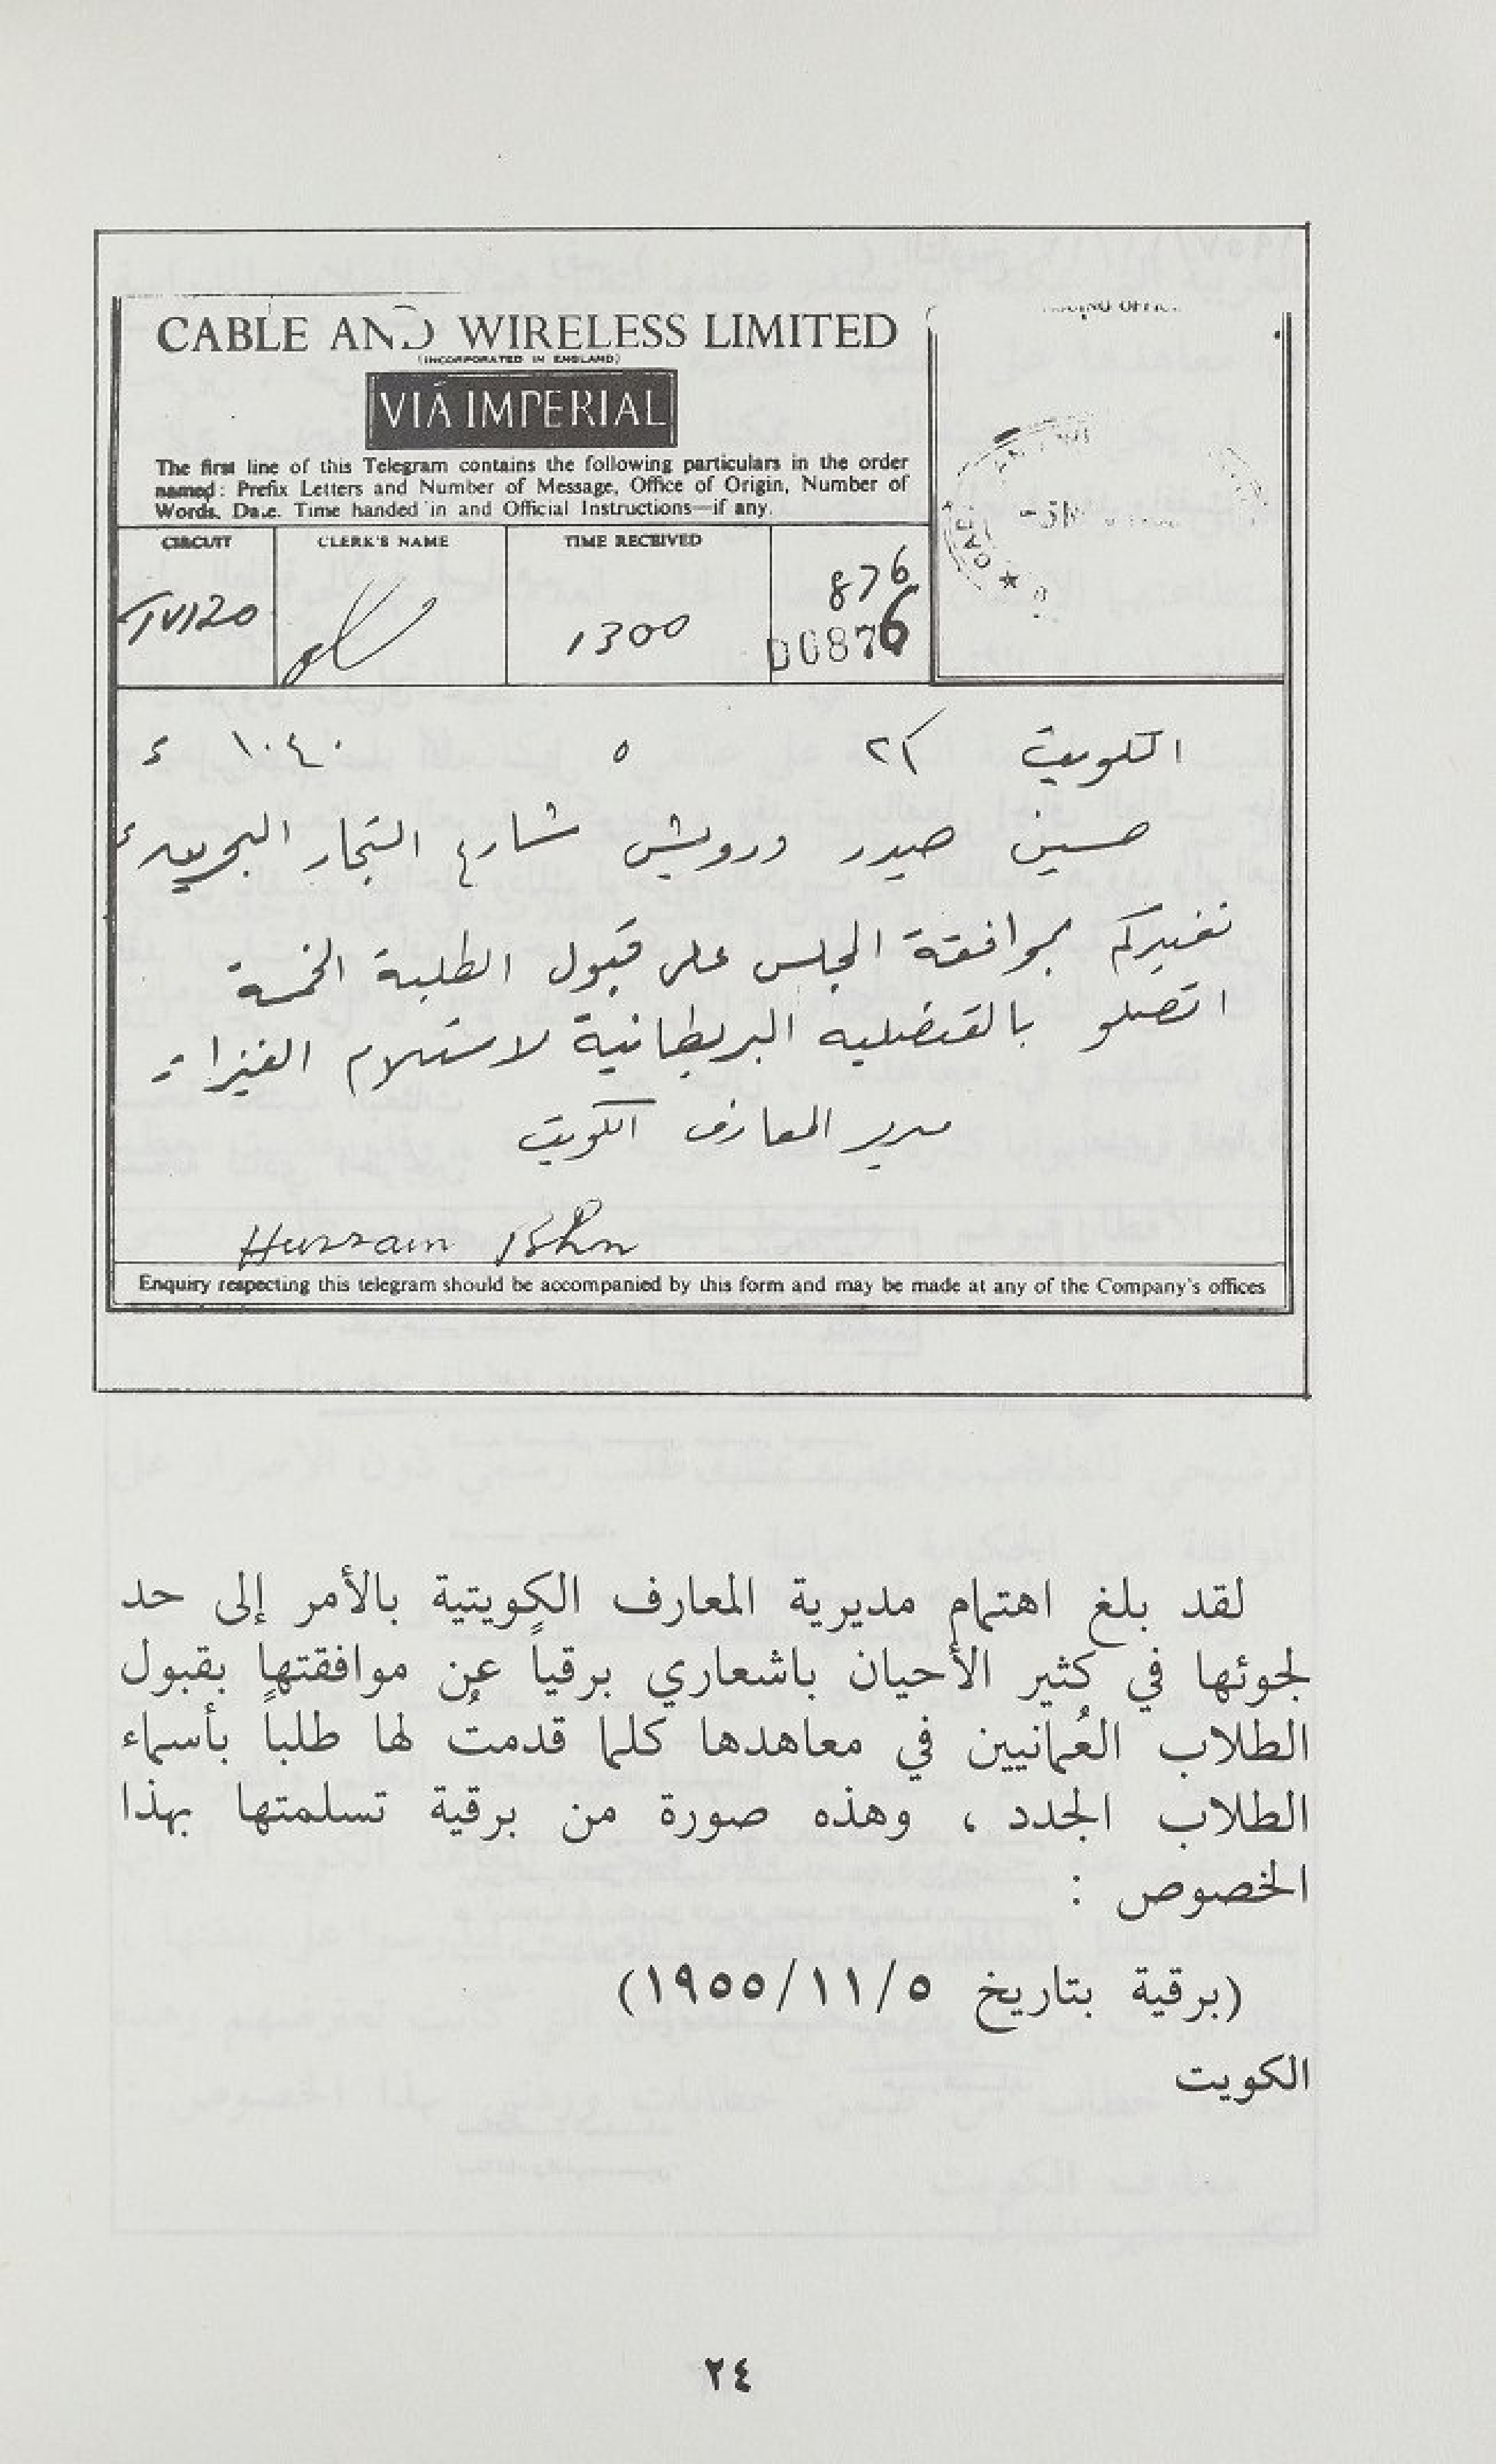 CABLE AND WIRELESS LIMITED
(INCORPORATED IN ENGLAND)
VIA IMPERIAL
The first line of this Telegram contains the following particulars in the order
named: Prefix Letters and Number of Message, Office of Origin, Number of
Words, Date, Time handed in and Official Instructions—if any.
CIRCUIT CLERK'S NAME TIME RECEIVED
876
1300
D0876
الكويت ٢٢ ٥ ١٠٤٠
حسين حيدر درويش شارع التجار البحرين
نفيدكم بموافقة المجلس على قبول الطلبة الخمسة
اتصلو بالقنصليه البريطانية لاستلام الفيزات
مدير المعارف الكويت
Hussain
Enquiry respecting this telegram should be accompanied by this form and may be made at any of the Company's offices
لقد بلغ اهتمام مديرية المعارف الكويتية بالأمر إلى حد
لجوئها في كثير الأحيان باشعاري برقياً عن موافقتها بقبول
الطلاب العُمانيين في معاهدها كلما قدمتُ لها طلباً بأسماء
الطلاب الجدد ، وهذه صورة من برقية تسلمتها بهذا
الخصوص :
(برقية بتاريخ ١٩٥٥/١١/٥)
الكويت
٢٤